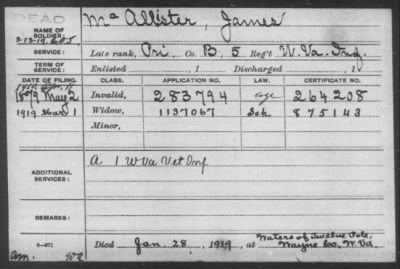 DEAD
NAME OF SOLDIER:
Mc Allister, James
SERVICE:
Late rank, Pri Co. B, 5 Reg't W. Va. Inf.
TERM OF SERVICE:
Enlisted , 1 Discharged , 1
DATE OF FILING. CLASS. APPLICATION NO. LAW. CERTIFICATE NO.
1879 May 2 Invalid, 283794 age 264208
1919 Mar 1 Widow, 1137067 875143
Minor,
ADDITIONAL SERVICES:
A 1 W Va Vet Inf
REMARKS:
Died Jan. 28, 1919, at Waters of Twelve Pole, Wayne Co, W. Va.